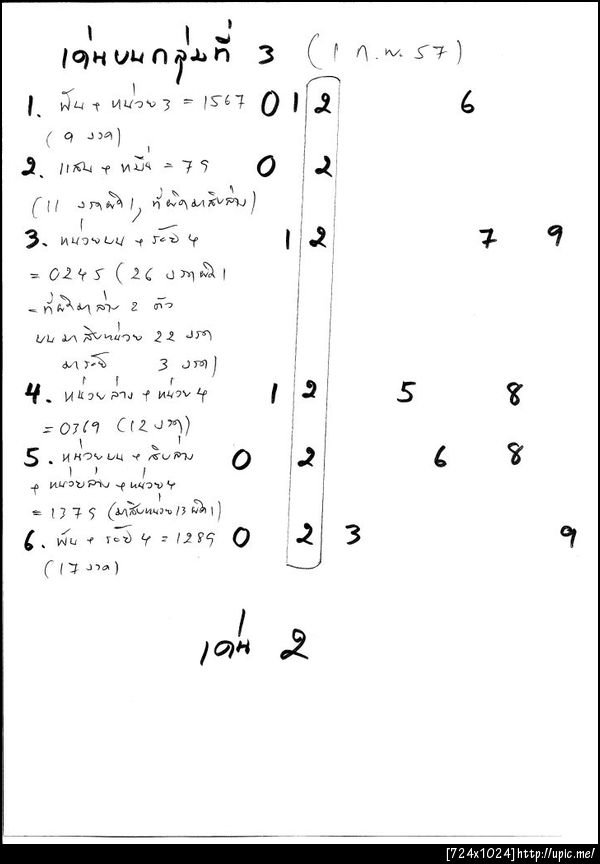 เด่นบนกลุ่มที่ 3 (1 ก.พ. 57)
1. พัน + หน่วย 3 = 1567 0 1 2 6
(9 งวด)
2. แสน + หมื่น = 79 0 2
(11 งวดผิด 1, ที่ผิดมาสิบล่าง)
3. หน่วยบน + ร้อย 4 1 2 7 9
= 0245 (26 งวดผิด 1
= ที่ผิดมาล่าง 2 ตัว
บนมาสิบหน่วย 22 งวด
มาร้อย 3 งวด)
4. หน่วยล่าง + หน่วย 4 1 2 5 8
= 0369 (12 งวด)
5. หน่วยบน + สิบล่าง 0 2 6 8
+ หน่วยล่าง + หน่วย 4
= 1379 (มาสิบหน่วย 13 ผิด 1)
6. พัน + ร้อย 4 = 1289 0 2 3 9
(17 งวด)
เด่น 2
[724x1024]http://upic.me/